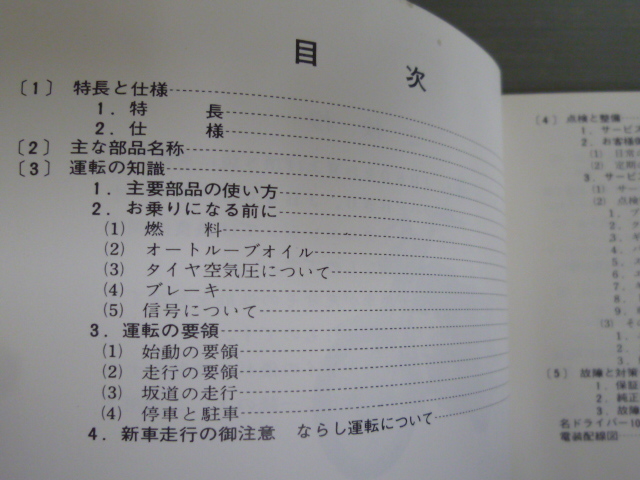 目次
〔1〕 特長と仕様
1．特長
2．仕様
〔2〕 主な部品名称
〔3〕 運転の知識
1．主要部品の使い方
2．お乗りになる前に
(1) 燃料
(2) オートルーブオイル
(3) タイヤ空気圧について
(4) ブレーキ
(5) 信号について
3．運転の要領
(1) 始動の要領
(2) 走行の要領
(3) 坂道の走行
(4) 停車と駐車
4．新車走行の御注意 ならし運転について
〔4〕 点検と整備
1．サービス
2．お客様
(1) 日常
(2) 定期
3．サービ
(1) サー
(2) 点検
(3) その
〔5〕 故障と対策
1．保証
2．純正
3．故障
名ドライバー10
電装配線図